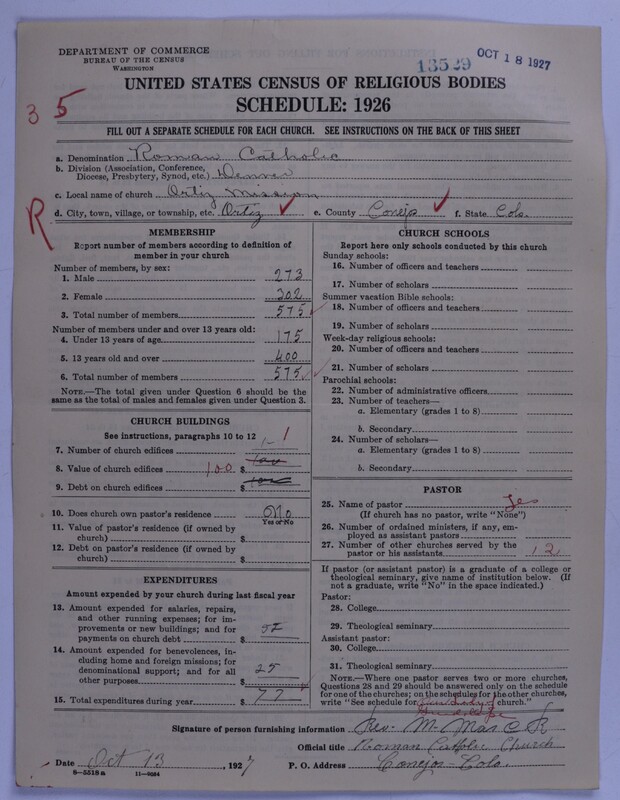 DEPARTMENT OF COMMERCE
BUREAU OF THE CENSUS
WASHINGTON
13529
OCT 18 1927
UNITED STATES CENSUS OF RELIGIOUS BODIES
SCHEDULE: 1926
35
FILL OUT A SEPARATE SCHEDULE FOR EACH CHURCH. SEE INSTRUCTIONS ON THE BACK OF THIS SHEET
a. Denomination Roman Catholic
b. Division (Association, Conference,
Diocese, Presbytery, Synod, etc.) Denver
c. Local name of church Ortiz Mission
R
d. City, town, village, or township, etc. Ortiz ✓ e. County Conejos ✓ f. State Colo.
MEMBERSHIP
Report number of members according to definition of
member in your church
Number of members, by sex:
1. Male 273
2. Female 302
3. Total number of members 575
Number of members under and over 13 years old:
4. Under 13 years of age 175
5. 13 years old and over 400
6. Total number of members 575
NOTE.—The total given under Question 6 should be
the same as the total of males and females given under Question 3.
CHURCH BUILDINGS
See instructions, paragraphs 10 to 12
7. Number of church edifices 1
8. Value of church edifices 100 $
9. Debt on church edifices $
10. Does church own pastor's residence No
Yes or No
11. Value of pastor's residence (if owned by
church) $
12. Debt on pastor's residence (if owned by
church) $
EXPENDITURES
Amount expended by your church during last fiscal year
13. Amount expended for salaries, repairs,
and other running expenses; for im-
provements or new buildings; and for
payments on church debt $ 52
14. Amount expended for benevolences, in-
cluding home and foreign missions; for
denominational support; and for all
other purposes $ 25
15. Total expenditures during year $ 77
CHURCH SCHOOLS
Report here only schools conducted by this church
Sunday schools:
16. Number of officers and teachers
17. Number of scholars
Summer vacation Bible schools:
18. Number of officers and teachers
19. Number of scholars
Week-day religious schools:
20. Number of officers and teachers
21. Number of scholars
Parochial schools:
22. Number of administrative officers
23. Number of teachers—
a. Elementary (grades 1 to 8)
b. Secondary
24. Number of scholars—
a. Elementary (grades 1 to 8)
b. Secondary
PASTOR
25. Name of pastor Yes
(If church has no pastor, write "None")
26. Number of ordained ministers, if any, em-
ployed as assistant pastors
27. Number of other churches served by the
pastor or his assistants 12
If pastor (or assistant pastor) is a graduate of a college or
theological seminary, give name of institution below. (If
not a graduate, write "No" in the space indicated.)
Pastor:
28. College
29. Theological seminary
Assistant pastor:
30. College
31. Theological seminary
NOTE.—Where one pastor serves two or more churches,
Questions 28 and 29 should be answered only on the schedule
for one of the churches; on the schedules for the other churches,
write "See schedule for Our Lady of church."
Guadalupe
Signature of person furnishing information Rev. M.
Official title Roman Catholic Church
Date Oct 13, 1927 P. O. Address Conejos Colo.
8—5518a 11—9084